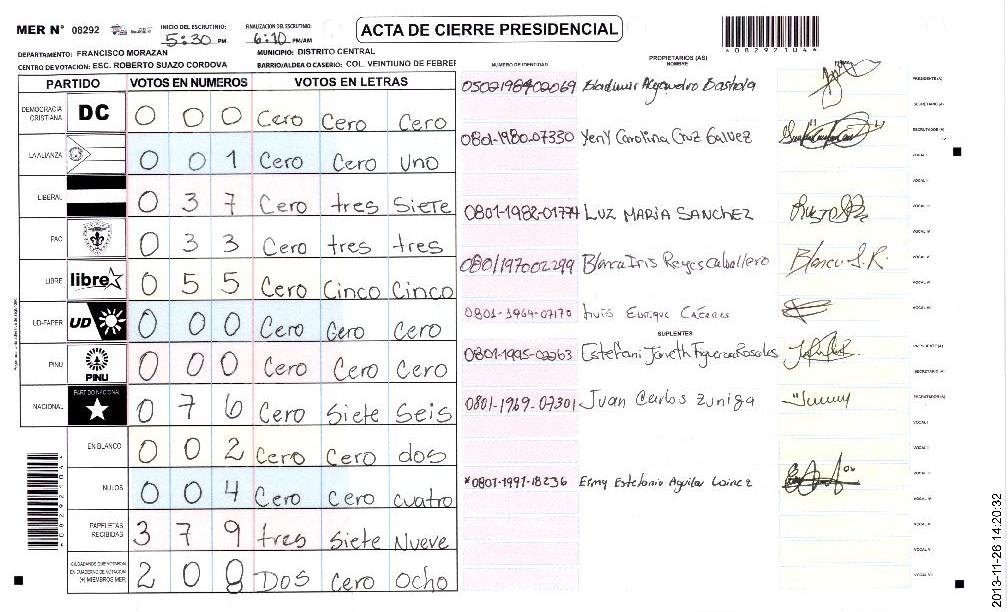 MER Nº 08292
INICIO DEL ESCRUTINIO: 5:30 PM
FINALIZACION DEL ESCRUTINIO: 6:10 PM/AM
ACTA DE CIERRE PRESIDENCIAL
*08292104*
DEPARTAMENTO: FRANCISCO MORAZAN
MUNICIPIO: DISTRITO CENTRAL
CENTRO DE VOTACION: ESC. ROBERTO SUAZO CORDOVA
BARRIO/ALDEA O CASERIO: COL. VEINTIUNO DE FEBRER
NUMERO DE IDENTIDAD
PROPIETARIOS (AS)
NOMBRE
PARTIDO VOTOS EN NUMEROS VOTOS EN LETRAS
DEMOCRACIA CRISTIANA DC 0 0 0 Cero Cero Cero
LA ALIANZA 0 0 1 Cero Cero Uno
LIBERAL 0 3 7 Cero tres Siete
PAC 0 3 3 Cero tres tres
LIBRE libre 0 5 5 Cero Cinco Cinco
UD-FAPER UD 0 0 0 Cero Cero Cero
PINU PINU 0 0 0 Cero Cero Cero
NACIONAL PARTIDO NACIONAL 0 7 6 Cero Siete Seis
EN BLANCO 0 0 2 Cero Cero dos
NULOS 0 0 4 Cero cero cuatro
PAPELETAS RECIBIDAS 3 7 9 tres Siete Nueve
CIUDADANOS QUE VOTARON EN CUADERNO DE VOTACION (+) MIEMBROS MER 2 0 8 Dos Cero Ocho
PRESIDENTE(A)
SECRETARIO(A)
0801-1980-07330 Yeny Carolina Cruz Galvez
ESCRUTADOR(A)
VOCAL I
VOCAL II
0801-1982-01774 LUZ MARIA SANCHEZ
VOCAL III
VOCAL IV
0801197002299 Blanca Iris Reyes Caballero Blanca I. R.
VOCAL V
0801-1969-07170 Luis Enrique Cáceres
SUPLENTES
0801-1995-02263 Estefani Janeth Figueroa Rosales
PRESIDENTE(A)
SECRETARIO(A)
0801-1969-07301 Juan Carlos Zuniga
ESCRUTADOR(A)
VOCAL I
VOCAL II
*0801-1991-18236
2013-11-26 14:20:32